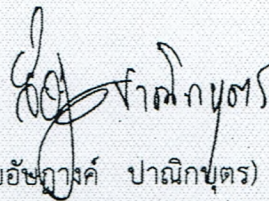 ปาณิกบุตร
อัษฎางค์ ปาณิกบุตร)